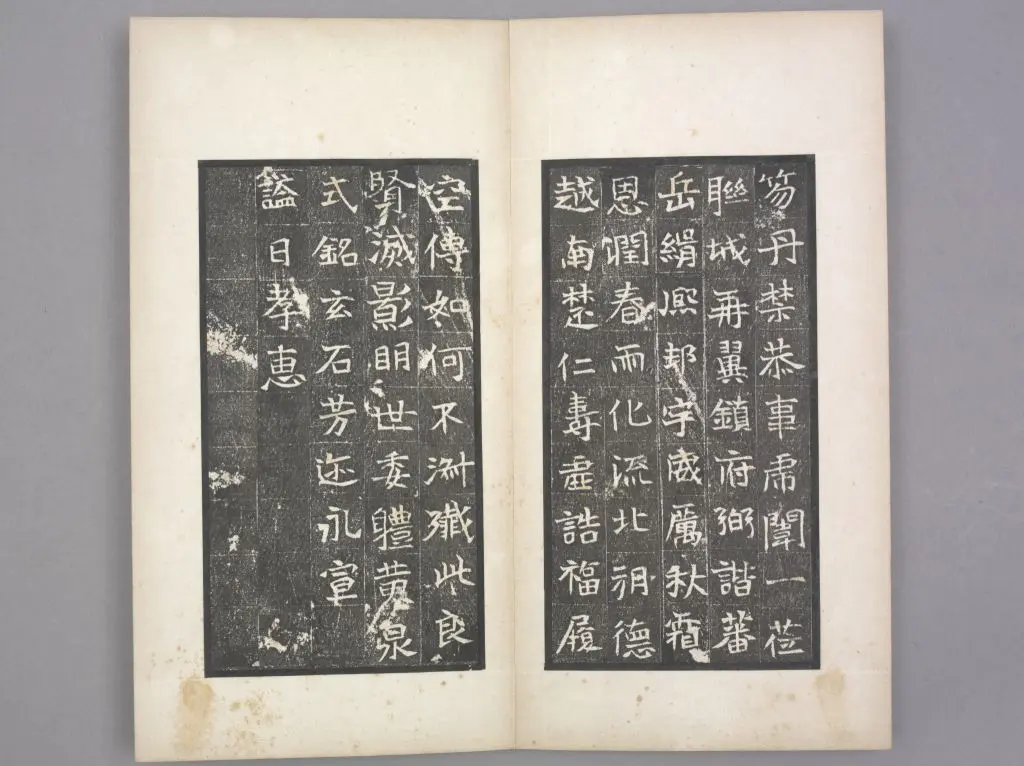 笏丹禁恭事闈一莅
聮城再翼鎮府弼諧蕃
岳緝熈邦宇威厲秋霜
恩潤春雨化流北朔德
越南楚仁壽虛誥福履
空傳如何不淑殲此良
賢滅影明世委軆黃泉
式銘玄石芳迹永宣
謚曰孝惠